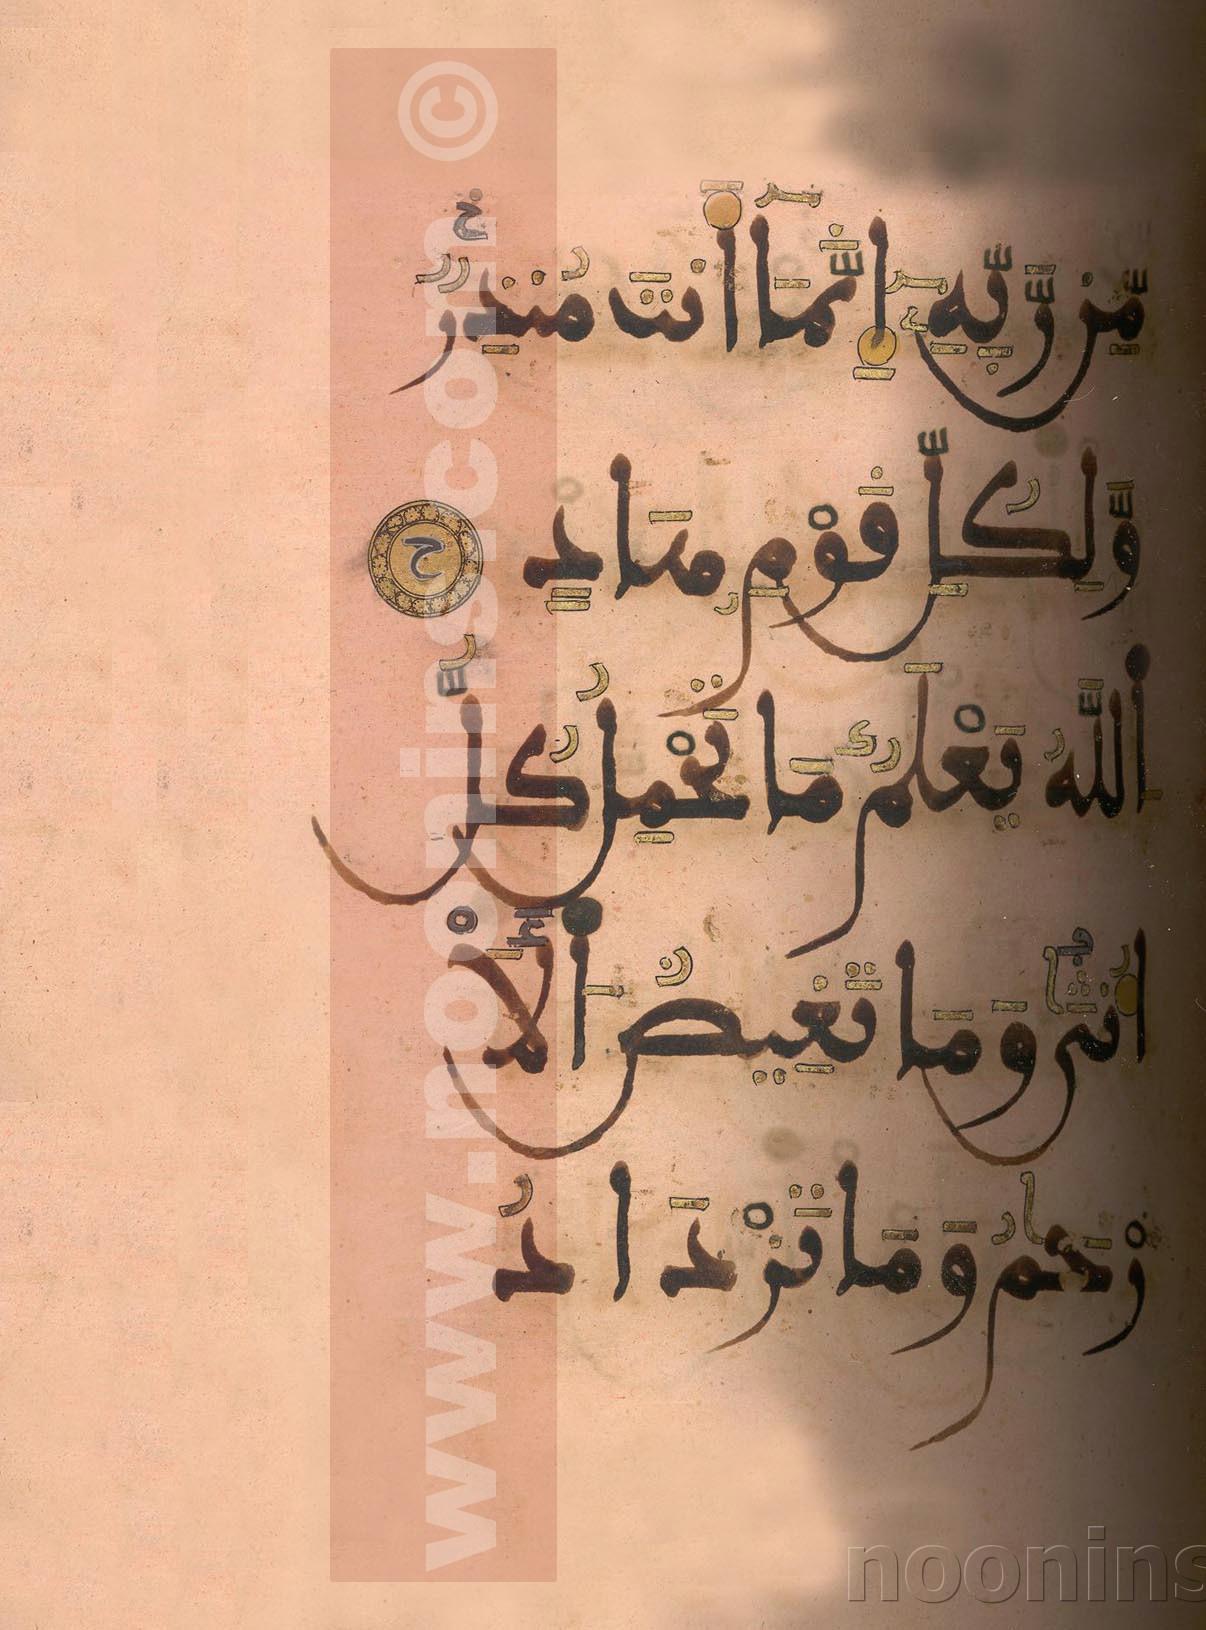 مِّن رَّبِّهِۦٓ إِنَّمَآ أَنتَ مُنذِرٌ ج
وَلِكُلِّ قَوْمٍ هَادٍ ح
اَللَّهُ يَعْلَمُ مَا تَحْمِلُ كُلُّ
أُنثَىٰ وَمَا تَغِيضُ اُ۬لْأَ
رْحَامُ وَمَا تَزْدَادُ
www.noonins.com ©
noonins